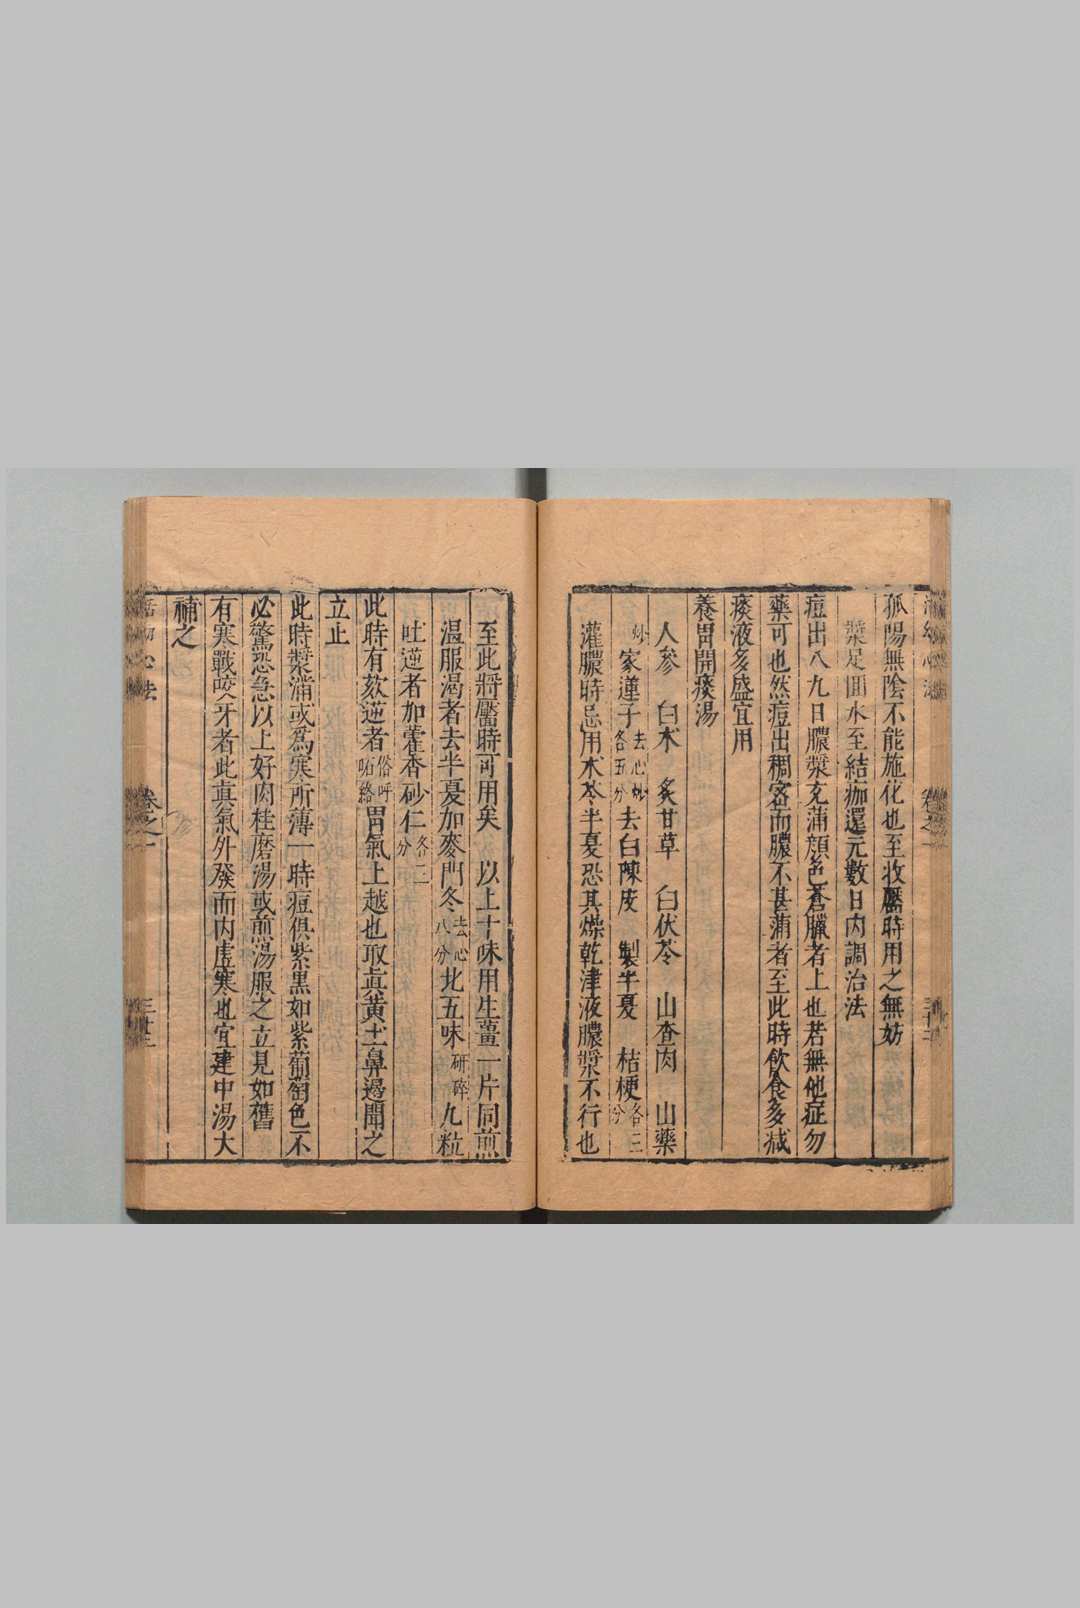 孤陽無陰不能施化也至收靨時用之無妨
漿足囬水至結痂還元數日内調治法
痘出八九日膿漿充滿顔色蒼臘者上也若無他症勿
藥可也然痘出稠宻而膿不甚滿者至此時飲食多减
痰液多盛宜用
養胃開痰湯
人参　白术　炙甘草　白伏苓　山查肉　山藥
炒　家蓮子去心炒各五分　去白陳皮　製半夏　桔梗各三分
灌膿時忌用术苓半夏恐其燥乾津液膿漿不行也
至此將靨時可用矣　以上十味用生薑一片同煎
温服渴者去半夏加麥門冬去心八分北五味研碎九粒
吐逆者加藿香砂仁各二分
此時有欬逆者俗呼咯胃氣上越也取真黄土鼻邊聞之
立止
此時漿滿或爲寒所薄一時痘俱紫黒如紫葡萄色不
必驚恐急以上好肉桂磨湯或煎湯服之立見如舊
有寒戰咬牙者此真氣外發而内虚寒也宜建中湯大
補之
活幼心法
卷之一